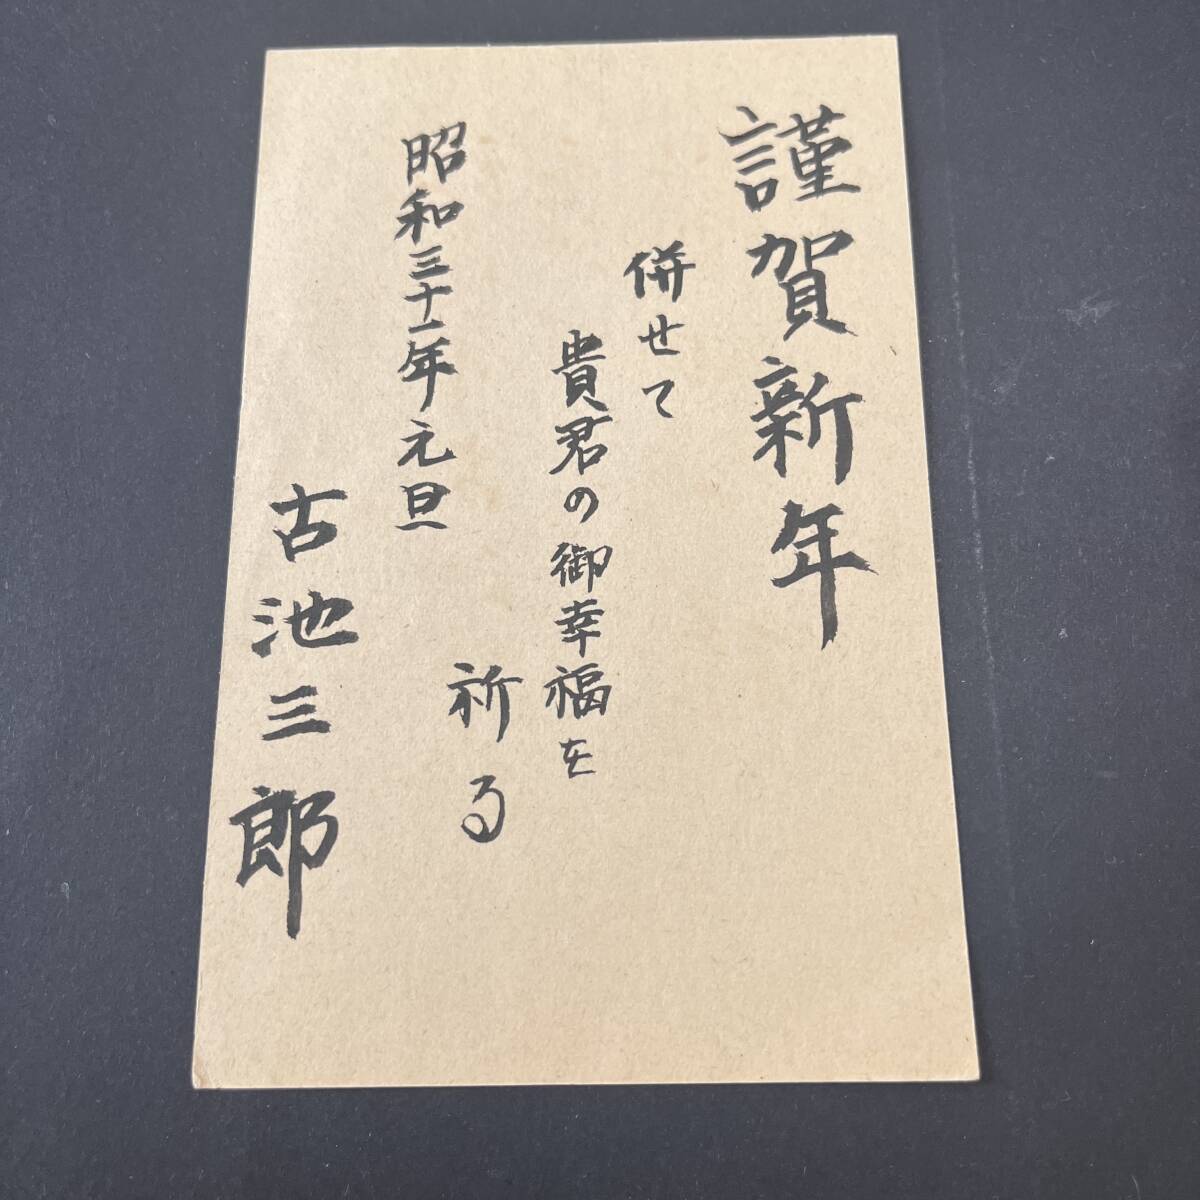 謹賀新年
併せて
貴君の御幸福を
祈る
昭和三十一年元旦
古池三郎